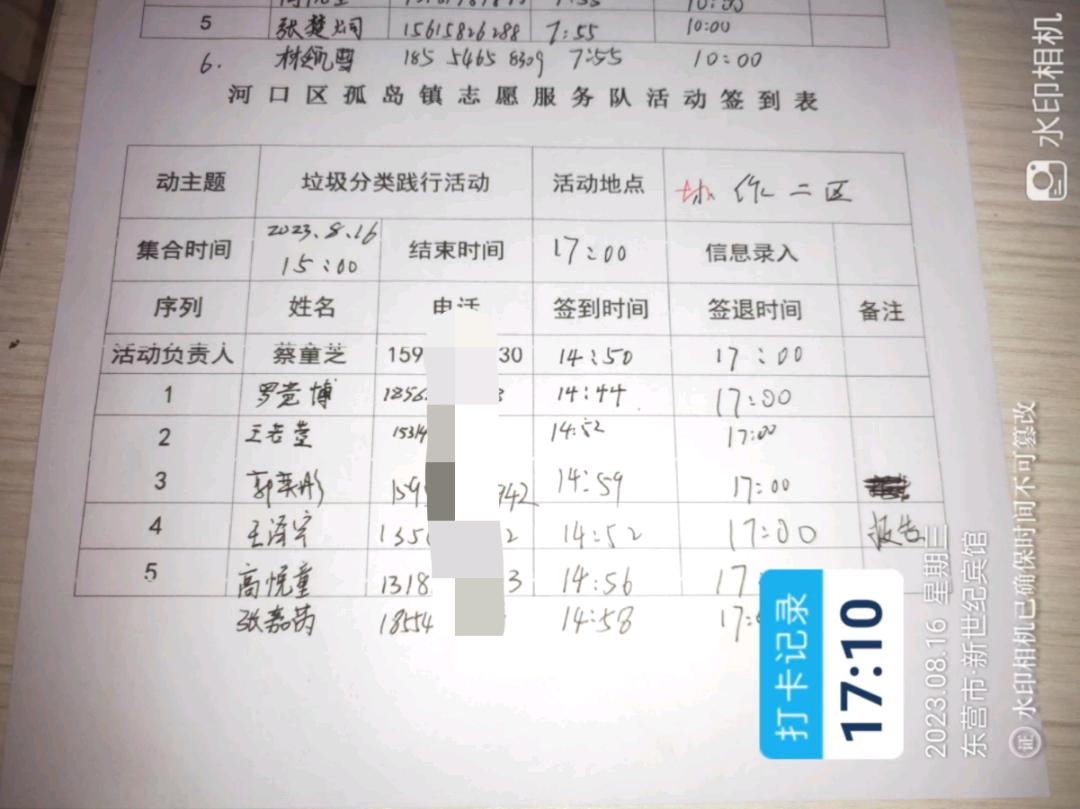 5 张楚炯 15615826288 7:55 10:00
6. 185 5465 8309 7:55 10:00
河口区孤岛镇志愿服务队活动签到表
动主题 垃圾分类践行活动 活动地点 协作二区
集合时间 2023.8.16 15:00 结束时间 17:00 信息录入
序列 姓名 电话 签到时间 签退时间 备注
活动负责人 蔡童芝 159 30 14:50 17:00
1 罗党博 1856 14:44 17:00
2 王若萱 1531 14:52 17:00
3 郭英彤 159 942 14:59 17:00
4 王泽宇 135 2 14:52 17:00 报告
5 高悦童 1318 3 14:56 17
张嘉芮 18554 14:58 17:
打卡记录
17:10
2023.08.16 星期三
东营市·新世纪宾馆
证 水印相机已确保时间不可篡改
水印相机